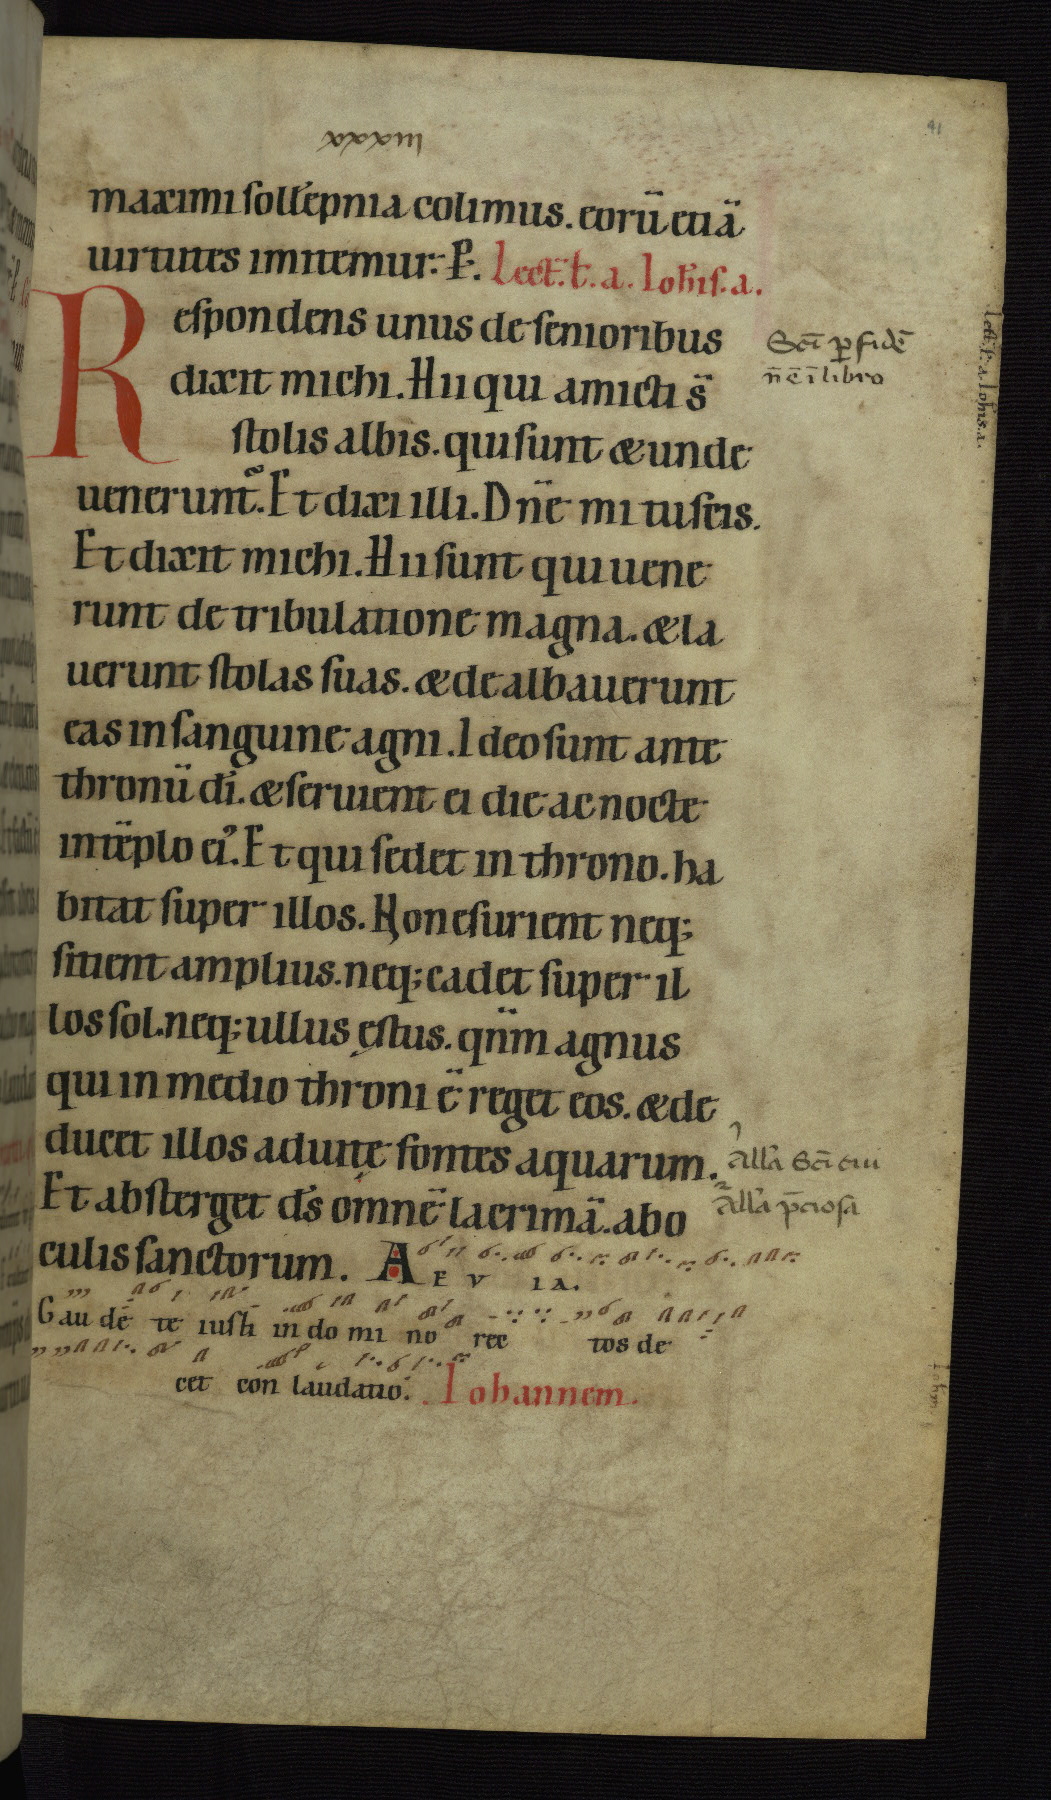 xxxxiiii
41
maximi sollẽpnia colimus. eorũ etiã
uirtutes imitemur: P̲. Lect̄. l. a. Ioħis. a.
Respondens unus de senioribus
dixit michi. Hii qui amicti s̄
stolis albis. qui sunt & unde
uenerunt. Et dixi illi. Dn̄e mi tu scis.
Et dixit michi. Hii sunt qui uene
runt de tribulatione magna. & la
uerunt stolas suas. & dealbauerunt
eas in sanguine agni. Ideo sunt ante
thronũ dī. & seruient ei die ac nocte
in tẽplo ei'. Et qui sedet in throno. ha
bitat super illos. Non esurient neq;
sitient amplius. neq; cadet super il
los sol. neq; ullus ęstus. qn̄m agnus
qui in medio throni ē reget eos. & de
ducet illos ad uitę fontes aquarum.
Et absterget ds̄ omnē lacrimã. ab o
culis sanctorum. AEVIA.
Gau de te iusti in do mi no rec tos de
cet con laudatio. Iohannem.
Scī p̱ fidē
n̄ ē ī libro
allã Scī tui
allã p̄ciosa
Lect̄. l. a. Ioħis. a.
Iohm